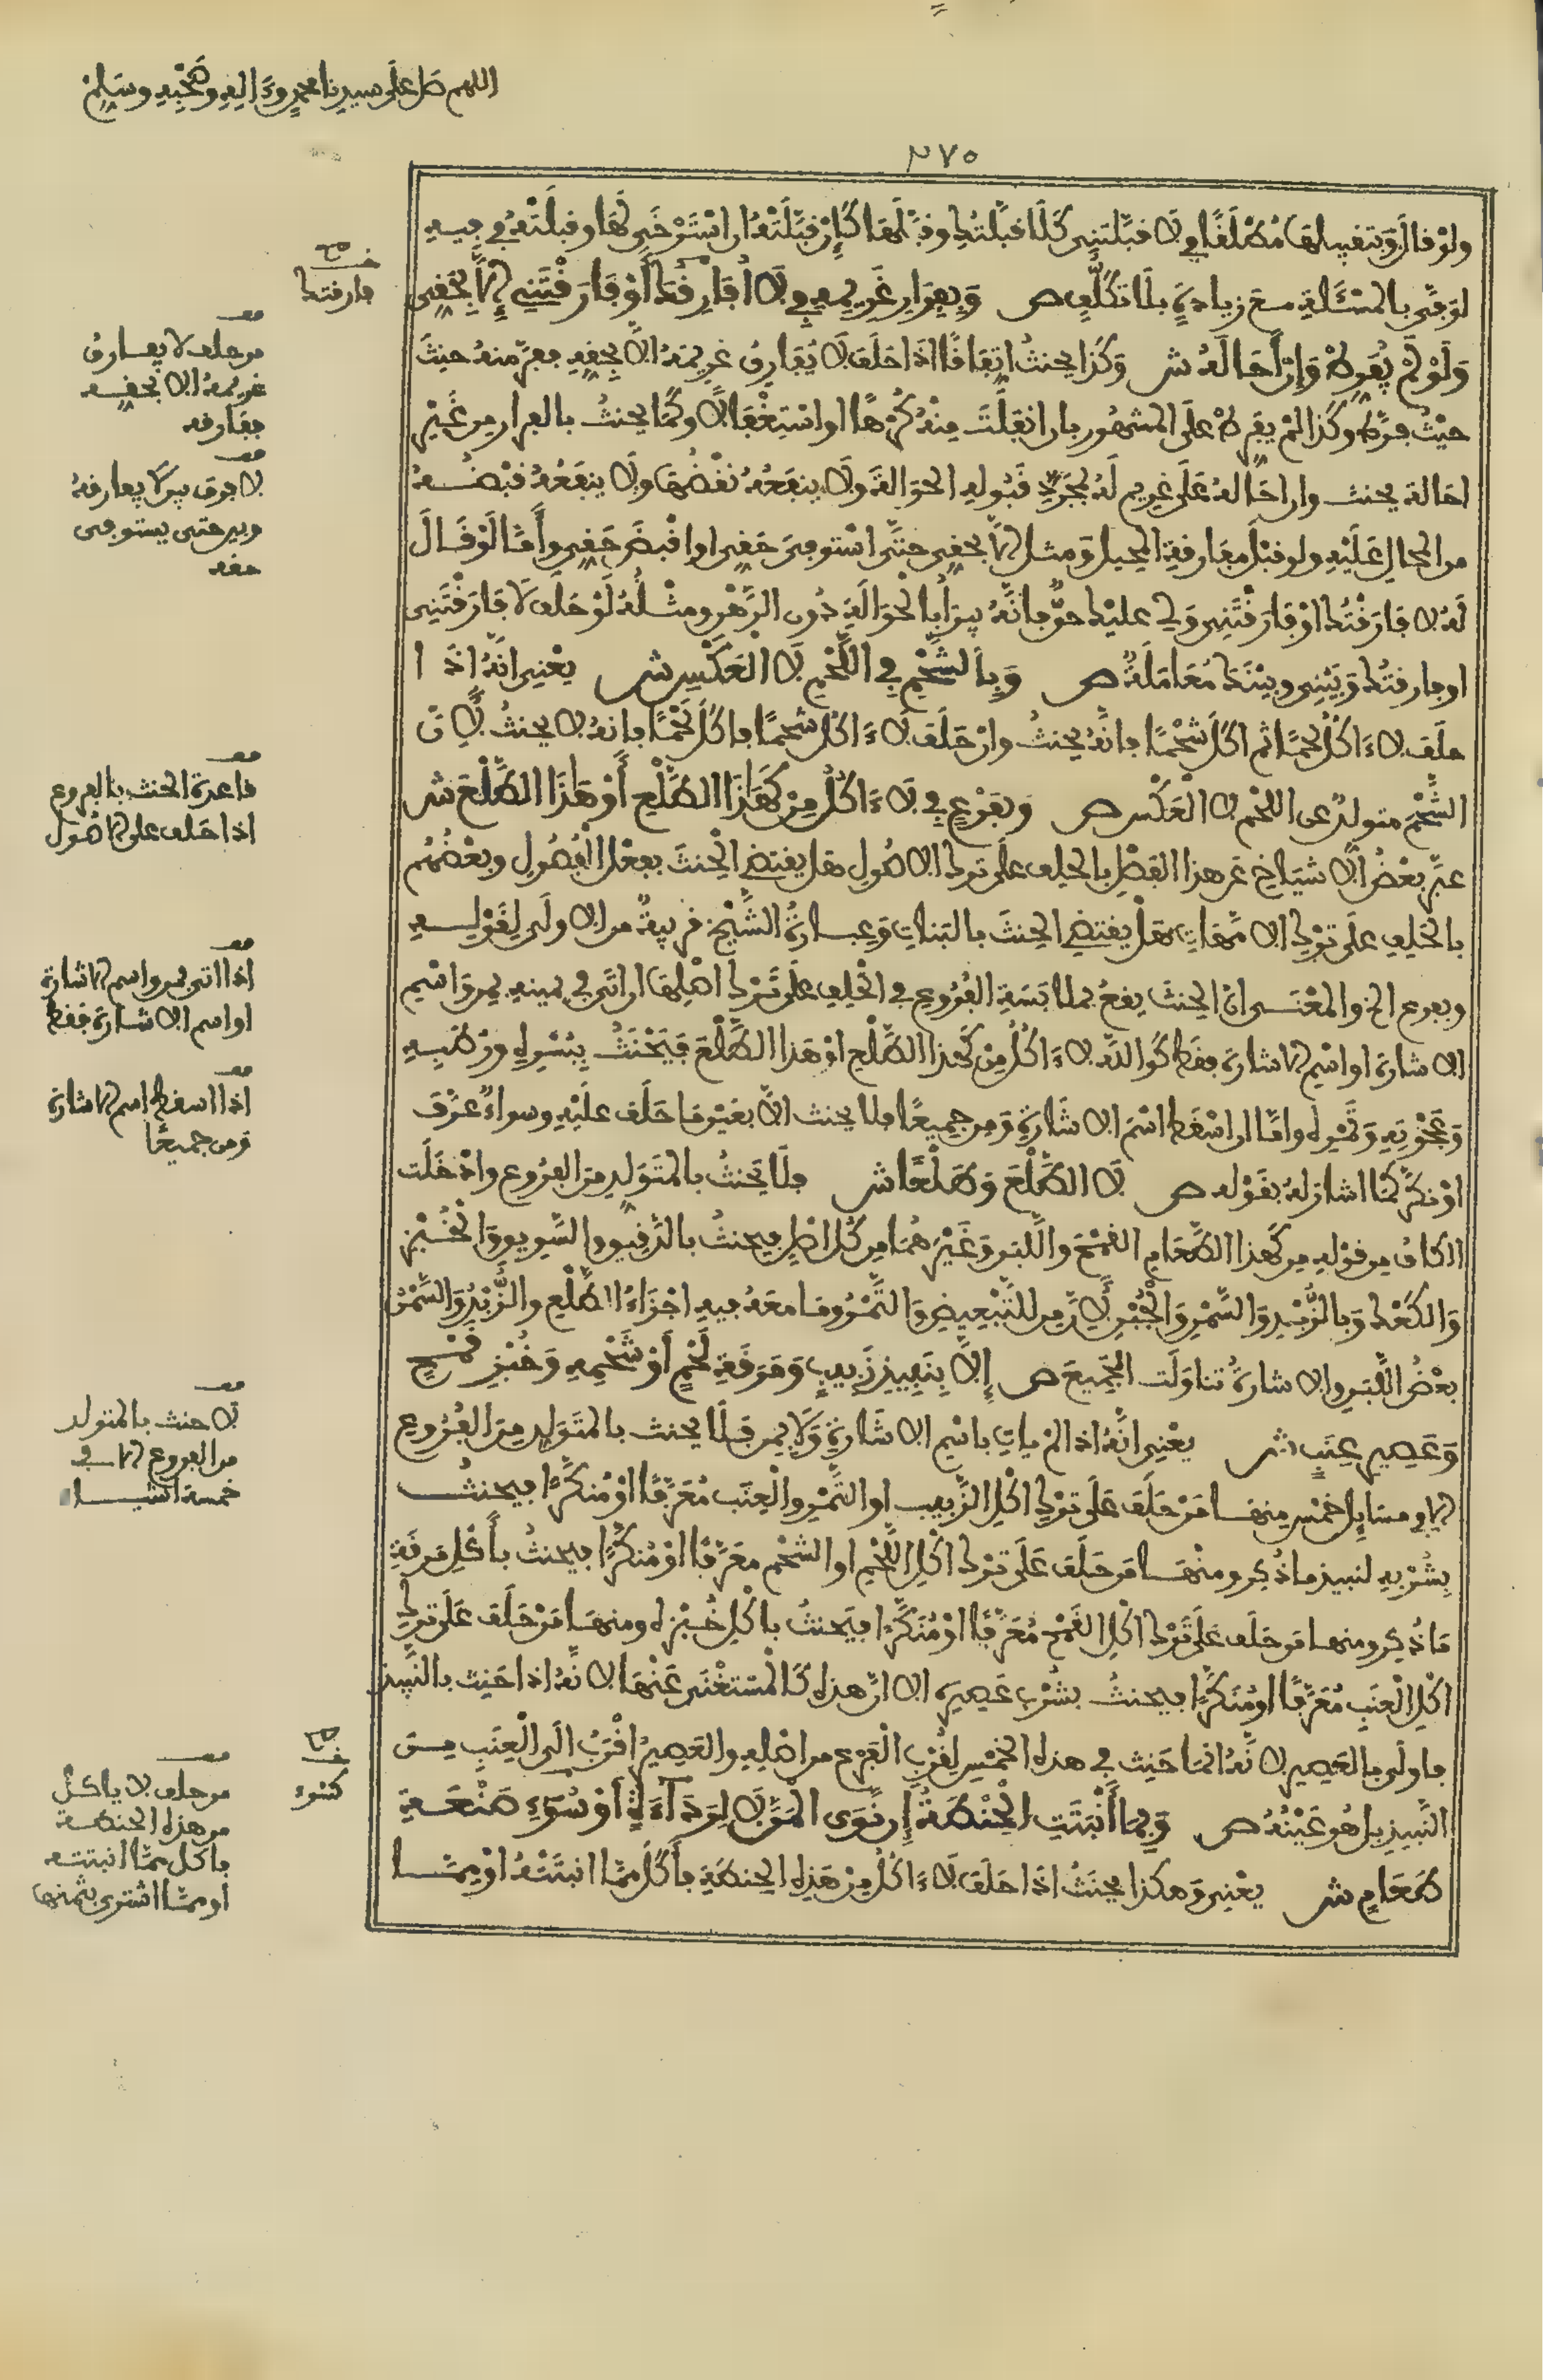 اللهم صل على سيدنا محمد وءاله وصحبه وسلم
٢٧٥
ولو قال وبتقبيلها مطلقا في لا قبلتني كلا قبلتك وقبلها كإن قبلته ان استرخى لها وقبلته في فيه
لوفى بالمسئلة مع زيادة بلا تكلف ص وَبِفِرَارِ غَرِيمِهِ فِي لَا أُفَارِقُكَ أَوْ فَارَقْتَنِي إِلَّا بِحَقِّي
وَلَوْ لَمْ يُفَرِّطْ وَإِنْ أَحَالَهُ ش وكذا يحنث اتفاقا اذا حلف لا يفارق غريمه الا بحقه ففر منه حيث
حيث فرط وكذا لم يفرط على المشهور بان انفلت منه كرها او استغفالا وكما يحنث بالفرار من غير
احالة يحنث وان احاله على غريم له بمجرد قبوله الحوالة ولا ينفعه نقضها ولا ينفعه قبضه
من المحال عليه ولو قبل مفارقة المحيل ومثل الا بحقي حتى استوفي حقي او اقبض حقي واما لو قال
له لا فارقتك او فارقتني ولي عليك حق فانه يبرا بالحوالة دون الرهن ومثله لو حلف لا فارقتني
او فارقتك وبيني وبينك معاملة ص وَبِالشَّحْمِ فِي اللَّحْمِ لَا الْعَكْسِ ش يعني انه اذا
حلف لا ءاكل لحما ثم اكل شحما فانه يحنث وان حلف لا ءاكل شحما فاكل لحما فانه لا يحنث لان
الشحم متولد عن اللحم لا العكس ص وَبِفَرْعٍ فِي لَا ءَاكُلُ مِنْ كَهَذَا الطَّلْعِ أَوْ هَذَا الطَّلْعَ ش
عبر بعض الاشياخ عن هذا الفصل بالحلف على ترك الاصول هل يقتضي الحنث بفعل الفصول وبعضهم
بالحلف على ترك الامهات هل يقتضي الحنث بالبنات وعبارة الشيخ قريبة من الاولى لقوله
وبفرع الخ والمعنى ان الحنث يقع بملابسة الفروع في الحلف على ترك اصلها ان اتى في يمينه بمن واسم
الاشارة او اسم الاشارة فقط كوالله لا ءاكل من كهذا الطلع او هذا الطلع فيحنث ببسره ورطبه
وعجوته وتمره واما ان اسقط اسم الاشارة ومن جميعا فلا يحنث الا بغير ما حلف عليه وسواء عرف
او نكر كما اشار له بقوله ص لَا الطَّلْعَ وَطَلْعًا ش فلا يحنث بالمتولد من الفروع وادخلت
الكاف من قوله من كهذا الطعام القمح واللبن وغيرهما من كل اصل فيحنث بالدقيق والسويق والخبز
والكعك وبالزبد والسمن والجبن لان من للتبعيض والتمر وما معه فيه اجزاء الطلع والزبد والسمن
بعض اللبن والاشارة تناولت الجميع ص إِلَّا بِنَبِيذِ زَبِيبٍ وَمَرَقَةِ لَحْمٍ أَوْ شَحْمِهِ وَخُبْزِ قَمْحٍ
وَعَصِيرِ عِنَبٍ ش يعني انه اذا لم يات باسم الاشارة ولا بمن فلا يحنث بالمتولد من الفروع
الا في مسايل خمس منها من حلف على ترك اكل الزبيب او التمر والعنب معرفا او منكرا فيحنث
بشربه لنبيذ ما ذكر ومنها من حلف على ترك اكل اللحم او الشحم معرفا او منكرا فيحنث باكل مرقة
ما ذكر ومنها من حلف على ترك اكل القمح معرفا او منكرا فيحنث باكل خبزه ومنها من حلف على ترك
اكل العنب معرفا او منكرا فيحنث بشرب عصيره الا ان هذه كالمستغنى عنها لانه اذا حنث بالنبيذ
فاولى بالعصير لانه انما حنث في هذه الخمس لقرب الفرع من اصله والعصير اقرب الى العنب من
النبيذ بل هو عينه ص وَبِمَا أَنْبَتَتِ الْحِنْطَةُ إِنْ نَوَى الْمَنَّ لَا لِرَدَاءَةٍ أَوْ سُوءِ صَنْعَةِ
طَعَامٍ ش يعني وهكذا يحنث اذا حلف لا ءاكل من هذه الحنطة فأكل مما انبتته او مما
فارقتك
من حلف لا يفارق
غريمه الا بحقه
ففارقه
لا فرق بين لا يفارقه
وبين حتى يستوفي
حقه
قاعدة الحنث بالفروع
اذا حلف على الاصول
اذا اتى بمن واسم الاشارة
او اسم الاشارة فقط
اذا اسقط اسم الاشارة
ومن جميعا
لا حنث بالمتولد
من الفروع الا في
خمسة اشياء
كسوء
من حلف لا ياكل
من هذه الحنطة
فاكل مما انبتته
او مما اشترى بثمنها